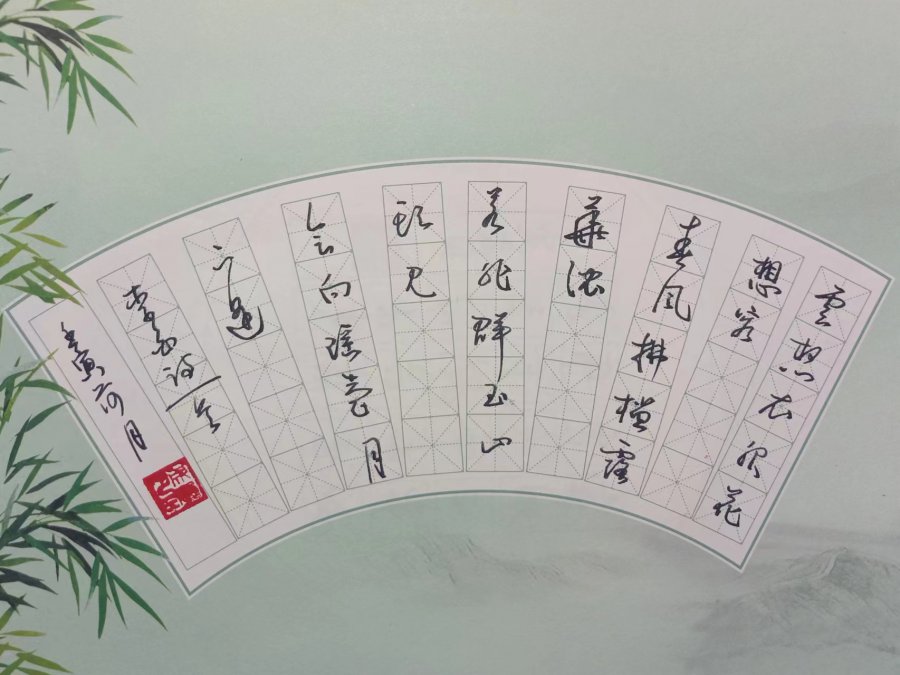 雲想衣裳花
想容
春风拂槛露
華浓
若非群玉山
頭见
会向瑶臺月
下逢
李白诗一首
壬寅荷月